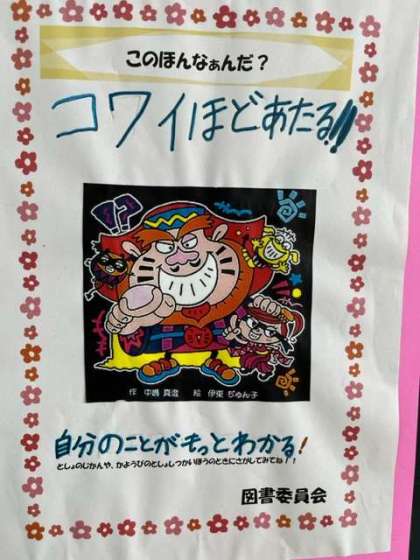 このほんなぁんだ？
コワイほどあたる!!
!?
作 中嶋 真澄 絵 伊東 ぢゅん子
自分のことがもっとわかる！
としょのじかんや、かようびのとしょしつかいほうのときにさがしてみてね！！
図書委員会